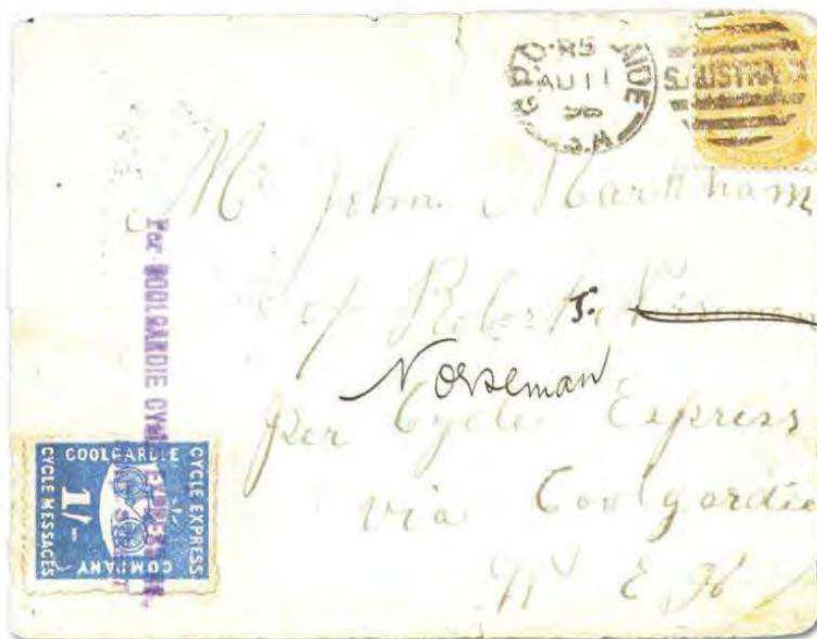 G.P.O. AIDE
AU 11
96
S.A
S.AUSTRA
Mr John Markham
Roberts
Norseman
per Cycle Express
via Coolgardie
Per COOLGARDIE CYCLE EXPRESS
COOLGARDIE
CYCLE EXPRESS
COMPANY
CYCLE MESSAGES
1/-